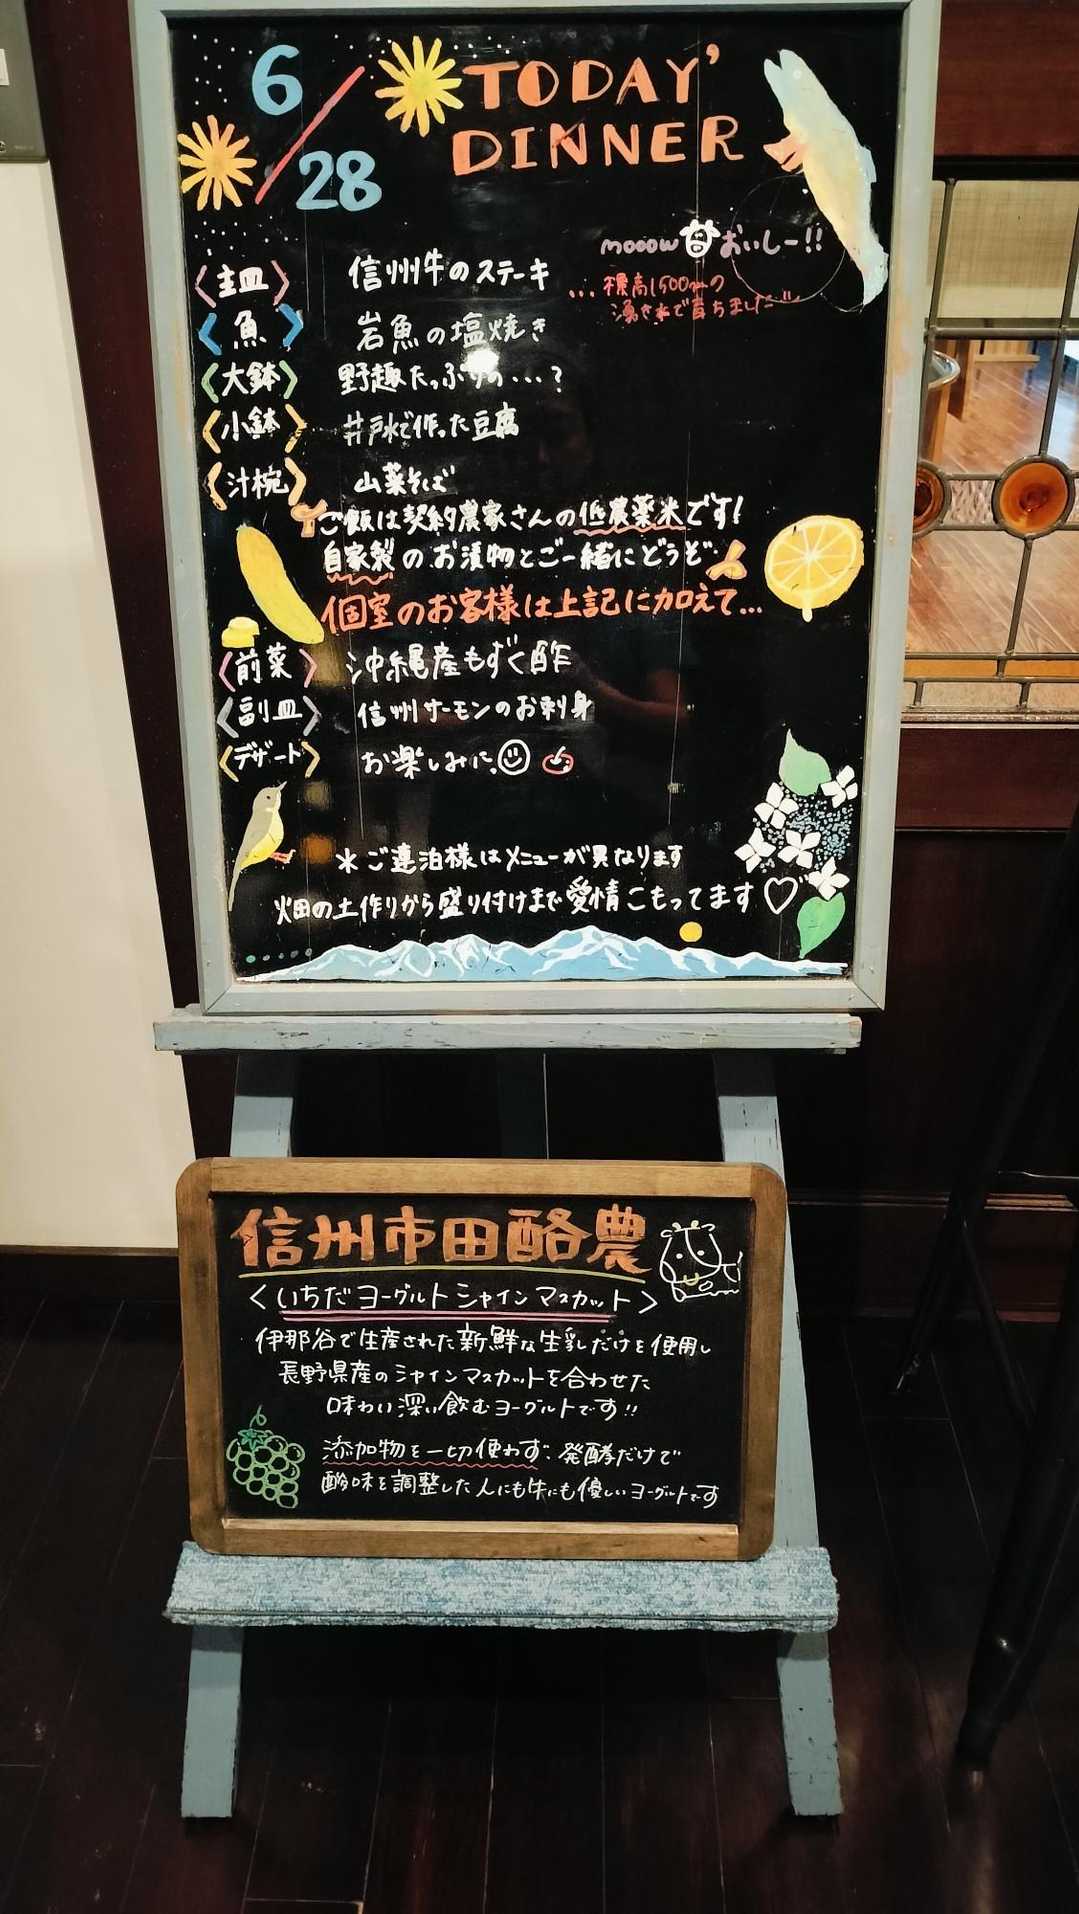 6/28
TODAY'
DINNER
mooow おいしー!!
〈主皿〉 信州牛のステーキ
...標高1500mの
湧き水で育ちました
〈魚〉 岩魚の塩焼き
〈大鉢〉 野趣たっぷりの...?
〈小鉢〉 井戸水で作った豆腐
〈汁椀〉 山菜そば
ご飯は契約農家さんの低農薬米です!
自家製のお漬物とご一緒にどうぞ
個室のお客様は上記に加えて...
〈前菜〉 沖縄産もずく酢
〈副皿〉 信州サーモンのお刺身
〈デザート〉 お楽しみに
*ご連泊様はメニューが異なります
畑の土作りから盛り付けまで愛情こもってます♡
信州市田酪農
〈いちだヨーグルト シャインマスカット〉
伊那谷で生産された新鮮な生乳だけを使用し
長野県産のシャインマスカットを合わせた
味わい深い飲むヨーグルトです!!
添加物を一切使わず、発酵だけで
酸味を調整した人にも牛にも優しいヨーグルトです